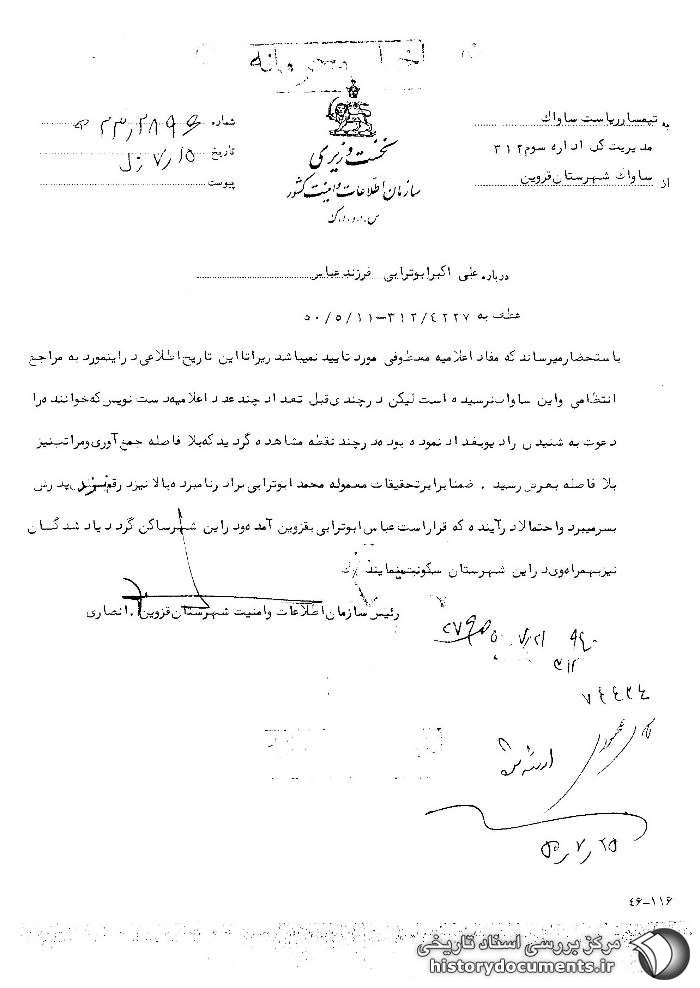 محرمانه
به تیمسار ریاست ساواک
مدیریت کل اداره سوم ۳۱۲
از ساواک شهرستان قزوین
نخست وزیری
سازمان اطلاعات و امنیت کشور
س.ا.و.ا.ک
شماره
تاریخ ۱۵/۷/
پیوست
درباره علی اکبر ابوترابی فرزند عباس
عطف به ۳۱۲/۴۲۲۷-۵۰/۵/۱۱
باستحضار میرساند که مفاد اعلامیه معطوفی مورد تایید نمیباشد زیرا تا این تاریخ اطلاعی در اینمورد به مراجع
انتظامی و این ساواک نرسیده است لیکن در چندی قبل تعداد چند عدد اعلامیه دست نویس که خواننده را
دعوت به شنیدن رادیو بغداد نموده بود در چند نقطه مشاهده گردید که بلا فاصله جمع آوری و مراتب نیز
بلا فاصله بعرض رسید . ضمنا برابر تحقیقات معموله محمد ابوترابی برادر نامبرده بالا نیز در قم نزد پدرش
بسر میبرد و احتمالا در آینده که قرار است عباس ابوترابی بقزوین آمده و در این شهر ساکن گردد یاد شدگان
نیز بهمراه وی در این شهرستان سکونت نمایند
رئیس سازمان اطلاعات و امنیت شهرستان قزوین . انصاری
۳۱۲
۷۴۴۲۴
۵۰/۷/۲۵
۴۶-۱۱۶
مرکز بررسی اسناد تاریخی
historydocuments.ir